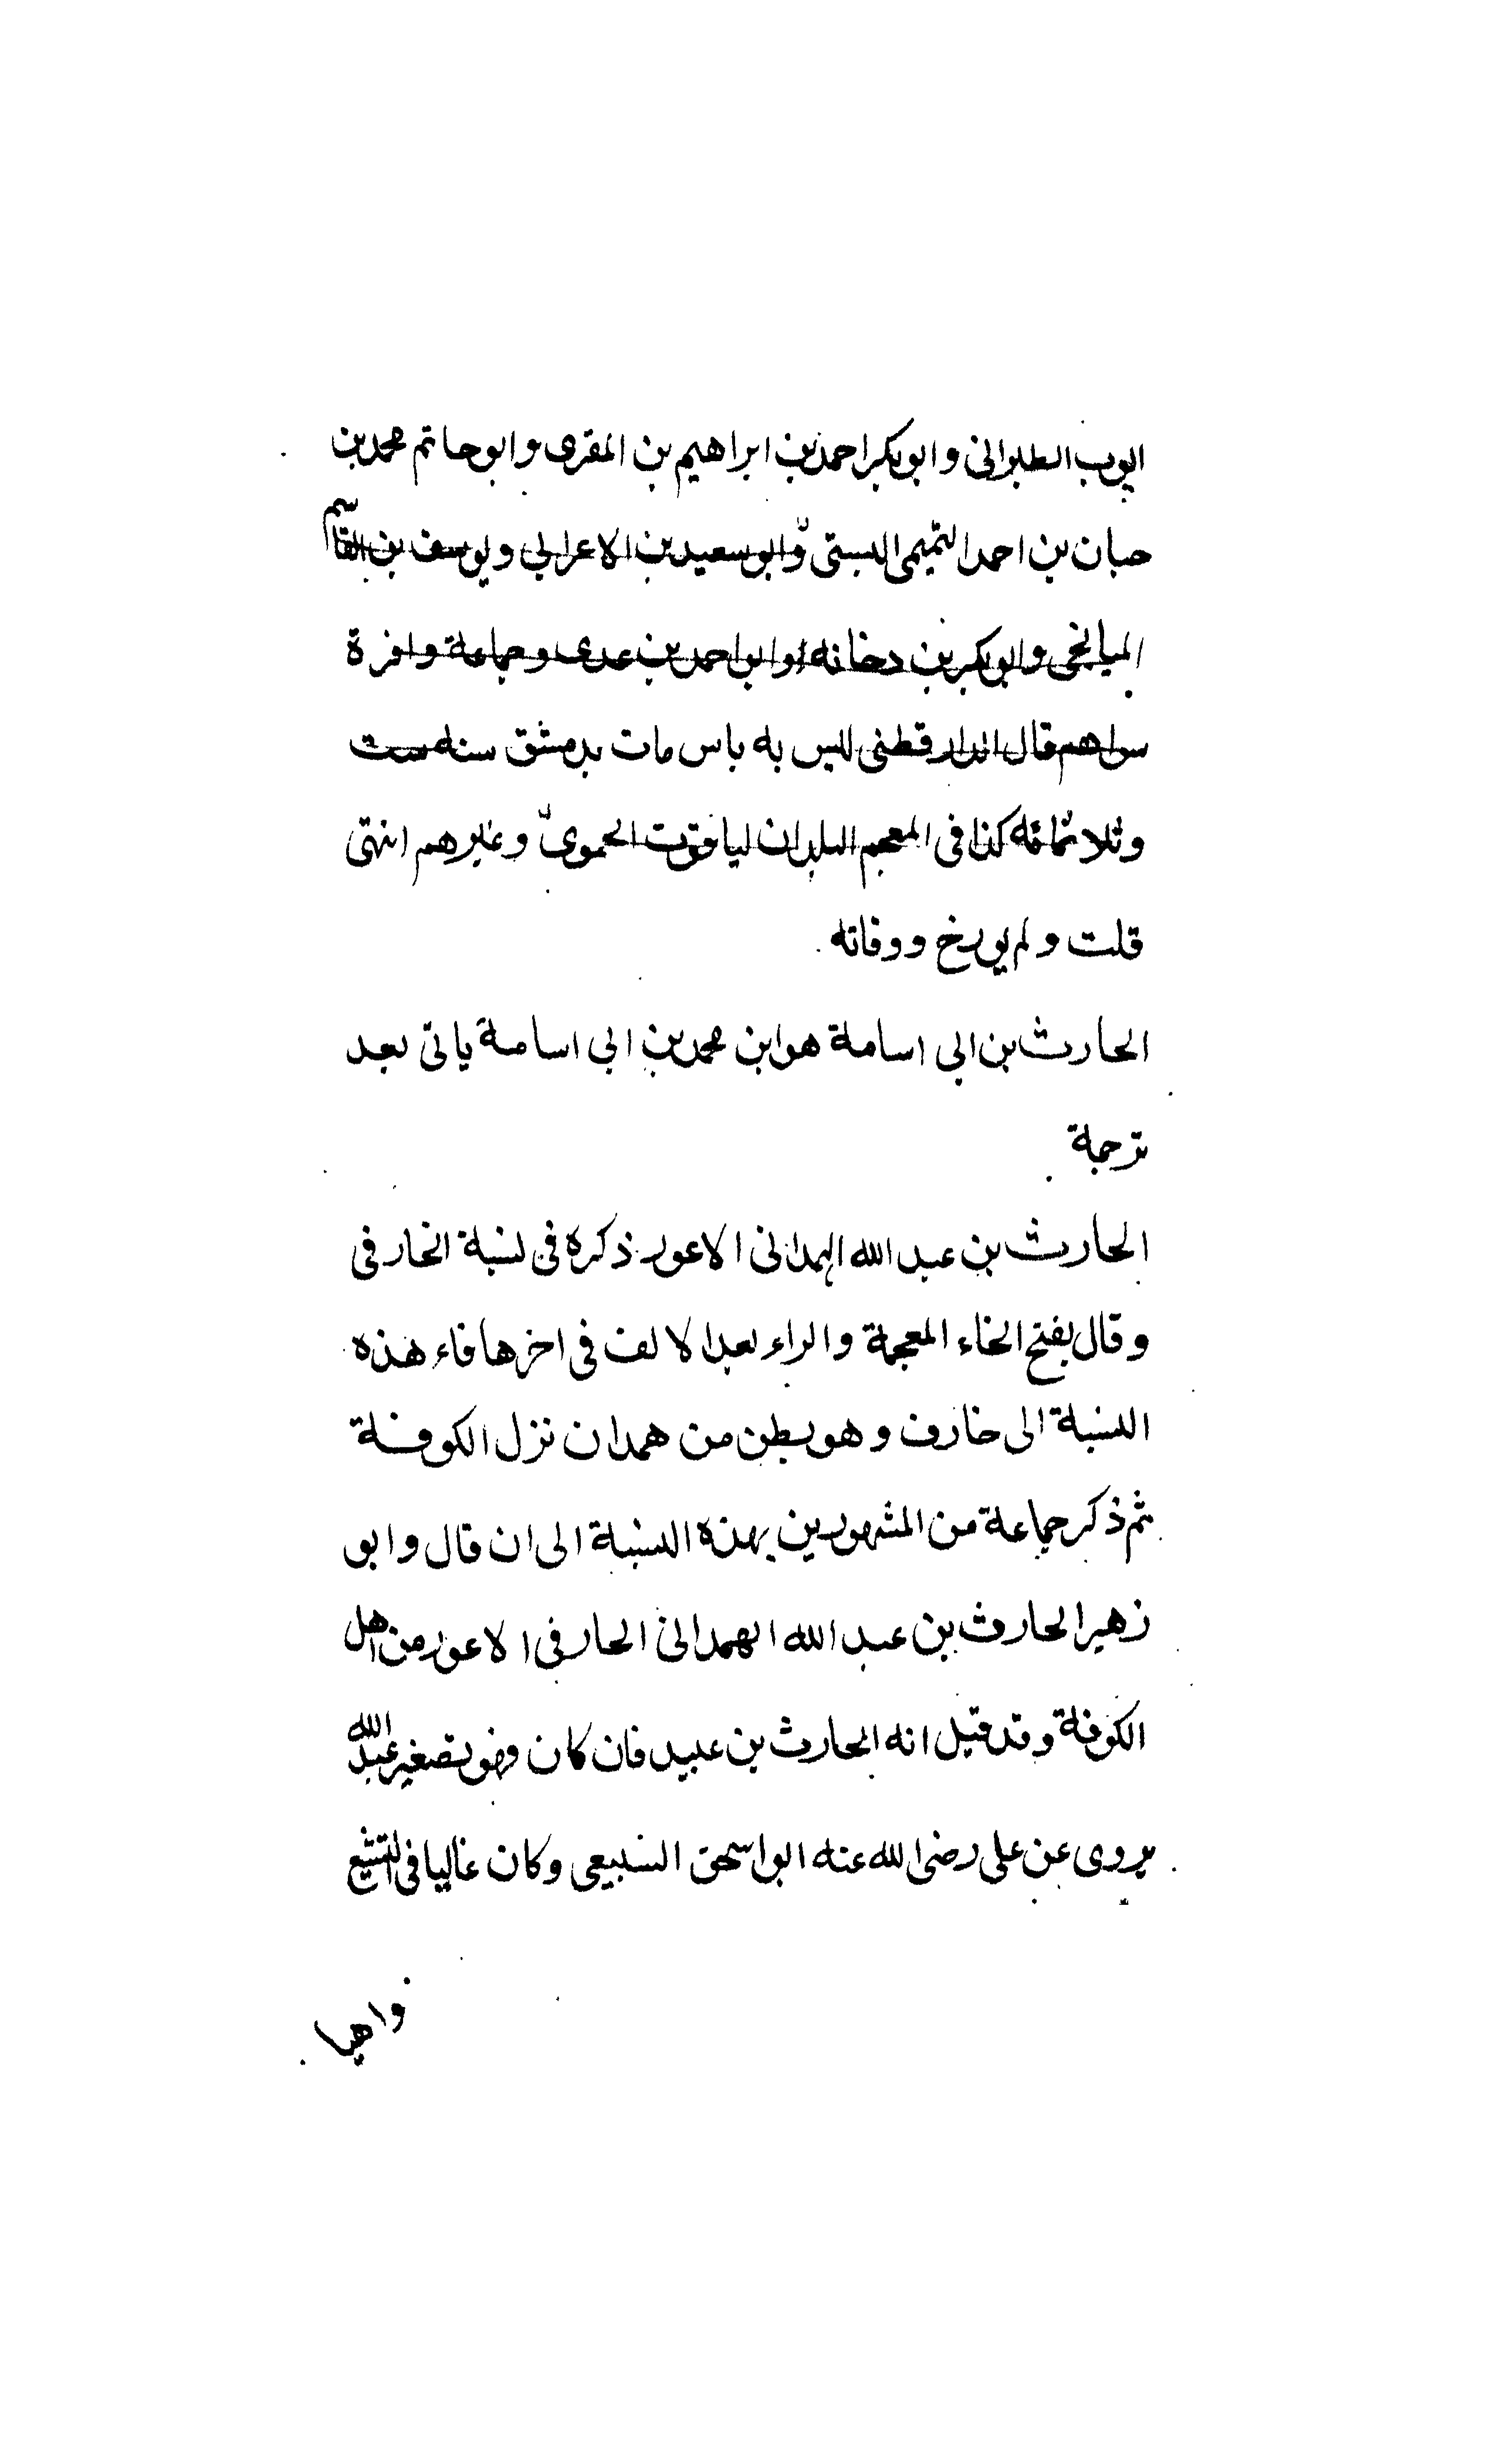 ايوب الطبراني وابو بكر احمد بن ابراهيم بن المقرى وابو حاتم محمد بن
حبان بن احمد التميمى البستى وابو سعيد بن الاعرابي ويوسف بن القاسم
الميانجى وابو بكر بن دخانه وابو احمد بن عدى وجماعة وافرة
سواهم قال الدار قطنى ليس به باس مات بدمشق سنه ست
وثلاثمائه كذا فى المعجم البلدان لياقوت الحموى وغيرهم انتهى
قلت ولم يورخ ووفاته
الحارث بن ابي اسامة هو ابن محمد بن ابي اسامة ياتى بعد
ترجمة
الحارث بن عبد الله الهمدانى الاعور ذكره فى نسبة الخارفى
وقال بفتح الخاء المعجمة والراء بعد الالف فى اخرها فاء هذه
النسبة الى خارف وهو بطن من همدان نزل الكوفة
ثم ذكر جماعة من المشهورين بهذه النسبة الى ان قال وابو
زهير الحارث بن عبد الله الهمدانى الحارفى الاعور من اهل
الكوفة وقد قيل انه الحارث بن عبيد فان كان فهو تصغير عبد الله
يروى عن على رضى الله عنه ابو اسحق السبيعى وكان غاليا فى التشيع
واهيا